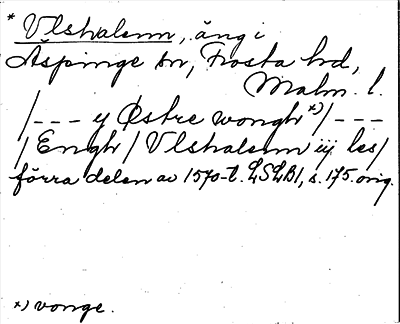 * Vlshalsnn, äng i
Äspinge sn, Frosta hd,
Malm. l.
/--- y Østre wongh *)/---
/Engh/ Vlshalsnn iij les/
förra delen av 1570-t. LSLB1, s. 175. orig.
*) vonge.